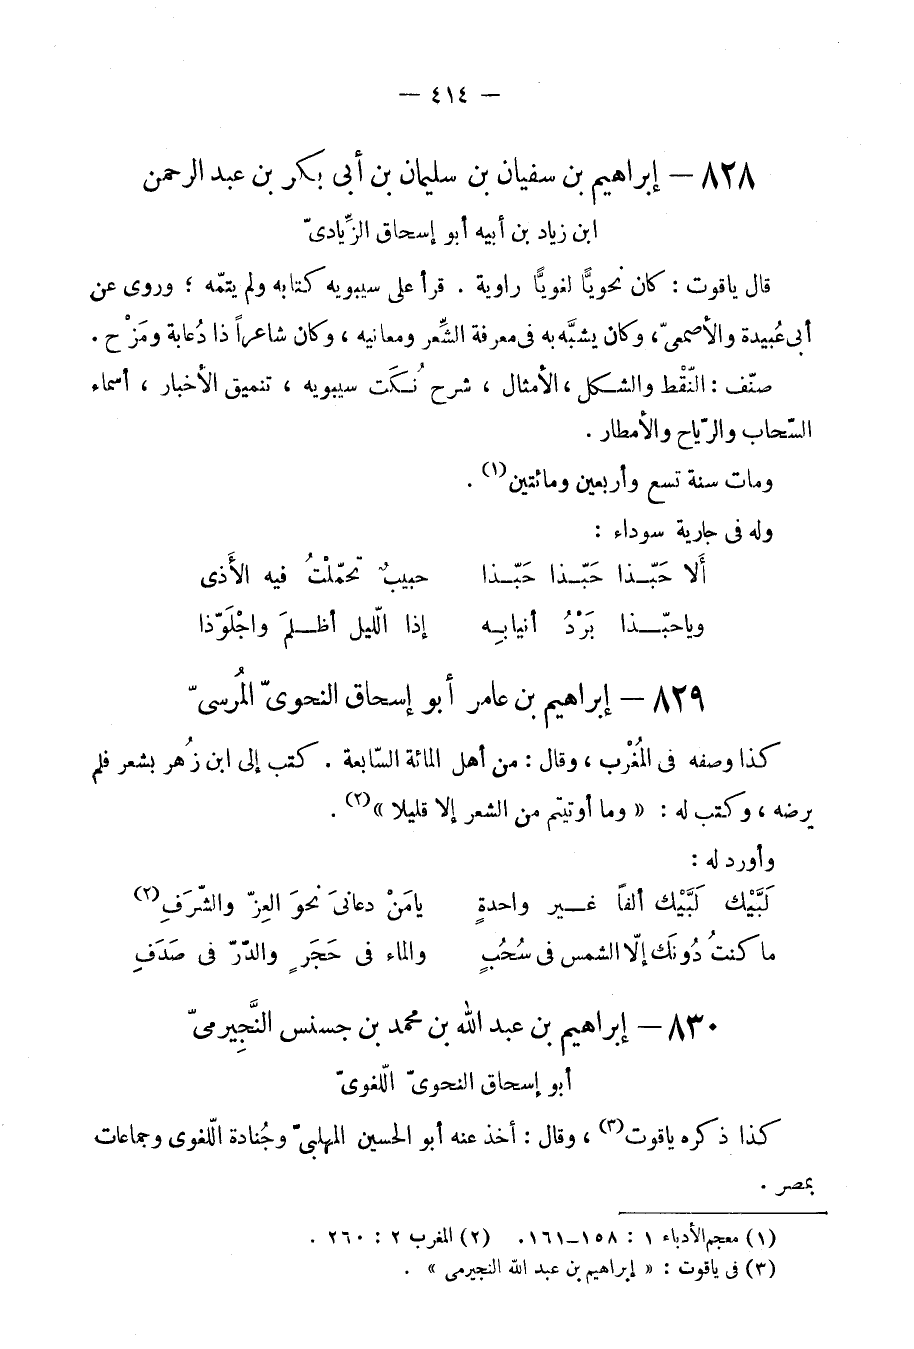 — ٤١٤ —
٨٢٨ — إبراهيم بن سفيان بن سليمان بن أبى بكر بن عبد الرحمن
ابن زياد بن أبيه أبو إسحاق الزِّيادىّ
قال ياقوت : كان نحويًّا لغويًّا راوية . قرأ على سيبويه كتابه ولم يتمّه ؛ وروى عن
أبى عُبيدة والأصمعىّ، وكان يشبَّه به فى معرفة الشِّعر ومعانيه ، وكان شاعراً ذا دُعابة ومَزْح .
صنّف : النَّقْط والشكل ، الأمثال ، شرح نُكَت سيبويه ، تنميق الأخبار ، أسماء
السّحاب والرّياح والأمطار .
ومات سنة تسع وأربعين ومائتين(١) .
وله فى جارية سوداء :
أَلا حَبّـذا حَبّـذا حَبّـذا حبيبٌ تحمّلْتُ فيه الأَذى
وياحبّـذا بَرْدُ أنيابِـه إذا الّليل أظـلمَ واجْلَوّذا
٨٢٩ — إبراهيم بن عامر أبو إسحاق النحوىّ المُرسىّ
كذا وصفه فى المُغْرب ، وقال : من أهل المائة السّابعة . كتب إلى ابن زُهر بشعر فلم
يرضه ، وكتب له : « وما أوتيتم من الشعر إلا قليلا »(٢) .
وأورد له :
لَبَّيْك لَبَّيْك ألفاً غـير واحدةٍ يامَنْ دعانىَ نحوَ العِزّ والشّرَفِ(٢)
ما كنتُ دُونَك إلّا الشمس فى سُحُبٍ والماء فى حَجَرٍ والدّرّ فى صَدَفِ
٨٣٠ — إبراهيم بن عبد الله بن محمد بن جسنس النَّجِيرمىّ
أبو إسحاق النحوىّ الّلغوىّ
كذا ذكره ياقوت(٣) ، وقال : أخذ عنه أبو الحسين المهلبىّ وجُنادة الّلغوى وجماعات
بمصر .
(١) معجم الأدباء ١ : ١٥٨ــ١٦١. (٢) المغرب ٢ : ٢٦٠ .
(٣) فى ياقوت : « إبراهيم بن عبد الله النجيرمى » .